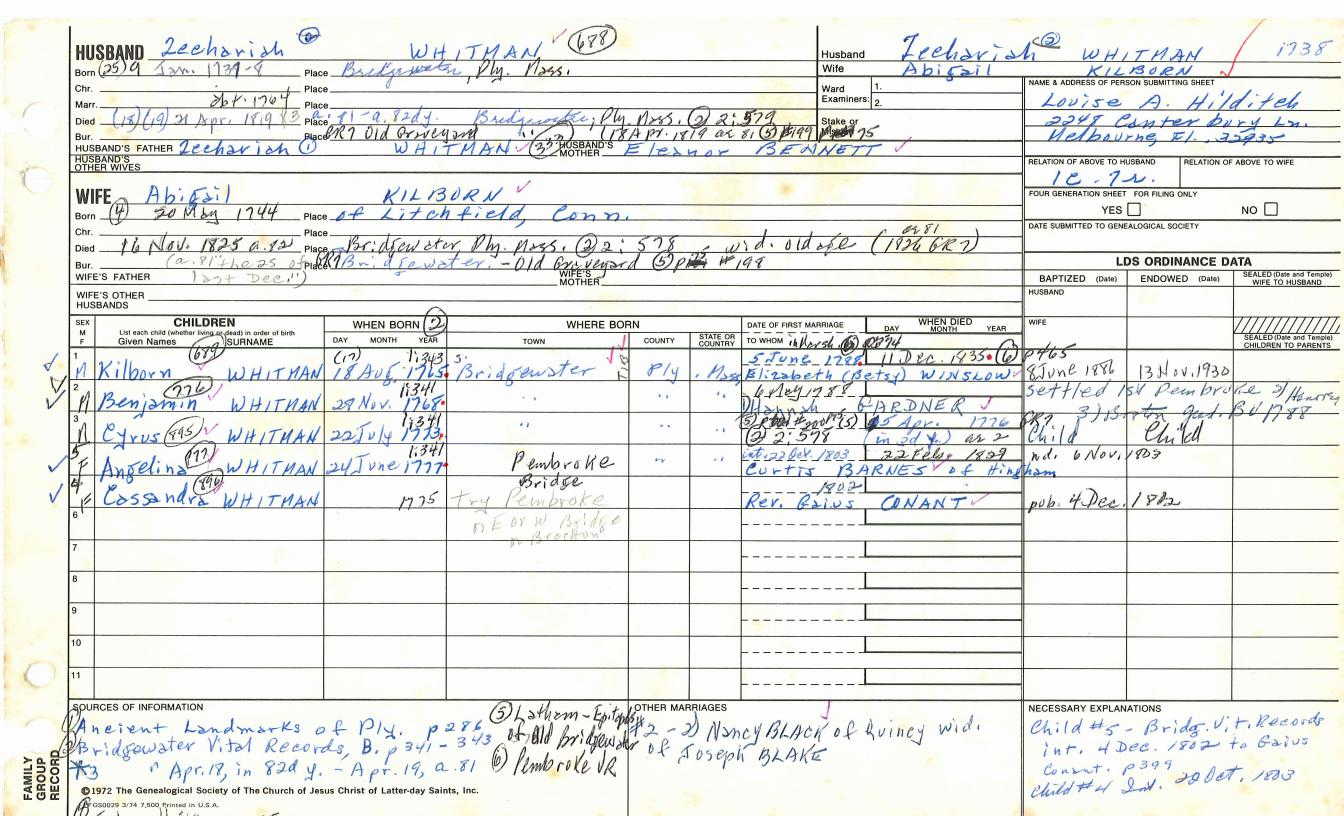 HUSBAND Zechariah ② WHITMAN 688
Born (25) 9 Jan. 1737-8 Place Bridgewater, Ply. Mass.
Chr. Place
Marr. abt. 1764 Place
Died (18)(19) 21 Apr. 1819 Place a. 81 - a. 82dy. Bridgewater, Ply. Mass. ② 2:579
Bur. Place GR7 Old Graveyard (18 Apr. 1819 ae 81 ⑤
HUSBAND'S FATHER Zechariah ① WHITMAN HUSBAND'S MOTHER Eleanor BENNETT
HUSBAND'S OTHER WIVES
WIFE Abigail KILBORN
Born ④ 20 May 1744 Place of Litchfield, Conn.
Chr. Place ae 81
Died 16 Nov. 1825 a. 82 Place Bridgewater, Ply. Mass. ② 2:578 wid. old age (1826 GR7)
Bur. (a. 81 "the 25 of Place GR7 Bridgewater. - Old Graveyard ⑤ p #198
WIFE'S FATHER last Dec.") WIFE'S MOTHER
WIFE'S OTHER HUSBANDS
Husband Zechariah ② WHITMAN 1738
Wife Abigail KILBORN
Ward Examiners: 1.
2.
Stake or
NAME & ADDRESS OF PERSON SUBMITTING SHEET
Louise A. Hilditch
2248 Canterbury Ln.
Melbourne Fl. 32935
RELATION OF ABOVE TO HUSBAND RELATION OF ABOVE TO WIFE
1c. 7r.
FOUR GENERATION SHEET FOR FILING ONLY
YES NO
DATE SUBMITTED TO GENEALOGICAL SOCIETY
LDS ORDINANCE DATA
BAPTIZED (Date) ENDOWED (Date) SEALED (Date and Temple) WIFE TO HUSBAND
HUSBAND
WIFE
SEALED (Date and Temple) CHILDREN TO PARENTS
SEX M F CHILDREN List each child (whether living or dead) in order of birth Given Names SURNAME WHEN BORN ② DAY MONTH YEAR WHERE BORN TOWN COUNTY STATE OR COUNTRY DATE OF FIRST MARRIAGE TO WHOM WHEN DIED DAY MONTH YEAR
1 689 (17) 1:343 5 June 1788 11 Dec. 1835 ⑥ p465
M Kilborn WHITMAN 18 Aug. 1765 Bridgewater Ply. Mass Elizabeth (Betsy) WINSLOW 8 June 1886 13 Nov. 1930
2 776 1:341 6 May 1788 Settled 1st Pembroke
M Benjamin WHITMAN 29 Nov. 1768 " " " Hannah GARDNER
3 1:341 ② 2:578 5 Apr. 1776
Cyrus 895 WHITMAN 22 July 1773 " " " (in 3d y.) ae 2 Child Child
5 777 1:341 int. 22 Oct. 1803 22 Feb. 1829 md. 6 Nov. 1803
F Angelina WHITMAN 24 June 1777 Pembroke " " Curtis BARNES of Hingham
4 896 Bridge 1802
F Cassandra WHITMAN 1775 Try Pembroke Rev. Gaius CONANT pub. 4 Dec. 1802
6 or E or W Bridge
7
8
9
10
11
SOURCES OF INFORMATION
① Ancient Landmarks of Ply. p 286
② Bridgewater Vital Records, B. p 341 - 343
*3 " Apr. 18, in 82d y. - Apr. 19, a. 81
⑤ Latham - Epitaphs of Old Bridgewater
⑥ Pembroke VR
OTHER MARRIAGES
#2 - 2) Nancy BLACK of Quincy wid. of Joseph BLAKE
NECESSARY EXPLANATIONS
Child #5 - Bridg. Vit. Records
int. 4 Dec. 1802 to Gaius
Conant. p 399
Child #4 Int. 22 Oct. 1803
FAMILY GROUP RECORD
©1972 The Genealogical Society of The Church of Jesus Christ of Latter-day Saints, Inc.
PFGS0029 3/74 7,500 Printed in U.S.A.